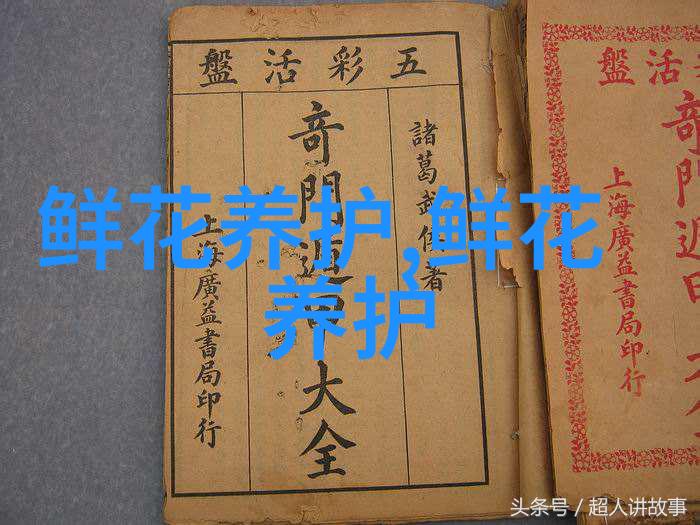 五彩活盤
諸葛武侯著
竒門遁甲大全
上海廣益書局印行
鲜花养护,鲜花
养护
活盤
竒門遁
上海廣益書局印行
头条号 / 超人讲故事